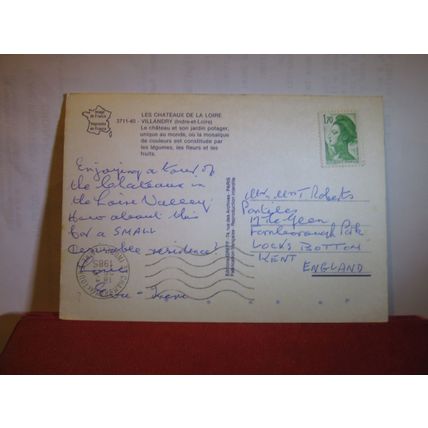 Image
de France
Imagerie
de France
3711-40 - LES CHATEAUX DE LA LOIRE
VILLANDRY (Indre-et-Loire)
Le château et son jardin potager,
unique au monde, où la mosaïque
de couleurs est constituée par
les légumes, les fleurs et les
fruits.
Enjoying a tour of
the Chateaux in
the Loire Valley
How about this
for a SMALL
Desirable residence!
Love
1,70
Mr, Mrs T Roberts
The Glen
Farnborough Park
LOCKS BOTTOM
KENT
ENGLAND
1985